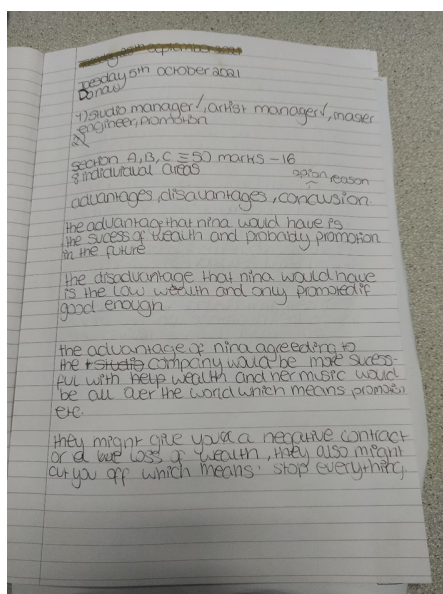 Tuesday 5th October 2021
Do now
1) Studio manager/, artist manager/, master
engineer, promotion
2)
Section A, B, C = 50 marks - 16
8 indiaviual areas
opion reason
advantages, disavantages, conclusion
the advantage that nina would have is
the sucess of wealth and probably promotion
in the future
the disadvantage that nina would have
is the low wealth and only promoted if
good enough
the advantage of nina agreeding to
the studio company would be more sucess-
ful with help wealth and her music would
be all over the world which means promoter
etc.
they might give you a negative contract
or a loss of wealth, they also might
cut you off which means stop everything.